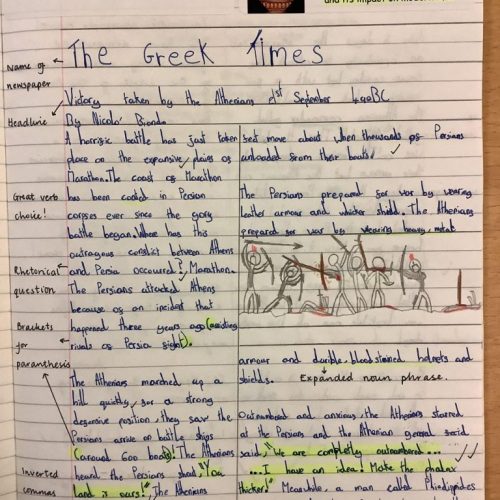 and its impact on modern
The Greek Times
Name of newspaper
Victory taken by the Athenians 21st September 490BC
Headline
By Nicolo'
A horrific battle has just taken
place on the expansive plains of
Marathon. The coast of Marathon
has been coated in Persian
corpses ever since the gory
battle began. Where has this
outrageous conflict between Athens
and Persia occoured? Marathon.
The Persians attacked Athens
because of an incident that
happened three years ago (assisting
rivals of Persia fight).
Great verb choice!
Rhetorical question
Brackets for paranthesis
The Athenians marched up a
hill quickly, for a strong
defensive position, they saw the
Persians arrive on battle ships
(around 600 boats). The Athenians
heard the Persians shout, "You
land is ours!", The Athenians
Inverted commas
next move about when thousands of Persians
unloaded from their boats.
The Persians prepared for war by wearing
leather armour and whicker shield. The Athenians
prepared for war by wearing heavy, metal
armour and durible, blood stained helmets and
shields.
Expanded noun phrase.
Outnumbered and anxious, the Athenians starred
at the Persians and the Athenian general said
said, "We are completly outnumbered...
...I have an idea! Make the phalax
thicker!" Meanwhile, a man called Phidippides